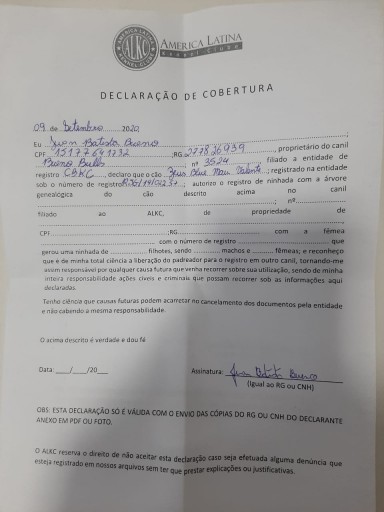 AMERICA LATINA
ALKC
KENNEL CLUB
AMERICA LATINA
Kennel Clube
DECLARAÇÃO DE COBERTURA
09 de Setembro 2020
Eu Juan Batista Bueno
CPF 15177641732 ;RG 27.782.6939, proprietário do canil
Bueno Bulls nº 3524 filiado a entidade de
registro CBKC, declaro que o cão ; registrado na entidade
sob o número de registro ; autorizo o registro de ninhada com a árvore
genealógica do cão descrito acima no canil
; nº
filiado ao ALKC, de propriedade de
CPF ;RG com a fêmea
com o número de registro que
gerou uma ninhada de filhotes, sendo machos e fêmeas; e reconheço
que é de minha total ciência a liberação do padreador para o registro em outro canil, tornando-me
assim responsável por qualquer causa futura que venha recorrer sobre sua utilização, sendo de minha
inteira responsabilidade ações cíveis e criminais que possam recorrer sob as informações aqui
declaradas.
Tenho ciência que causas futuras podem acarretar no cancelamento dos documentos pela entidade
e não cabendo a mesma responsabilidade.
O acima descrito é verdade e dou fé
Data: ___/___/20___ Assinatura: Juan Batista Bueno
(Igual ao RG ou CNH)
OBS: ESTA DECLARAÇÃO SÓ É VÁLIDA COM O ENVIO DAS CÓPIAS DO RG OU CNH DO DECLARANTE
ANEXO EM PDF OU FOTO.
O ALKC reserva o direito de não aceitar esta declaração caso seja efetuada alguma denúncia que
esteja registrado em nossos arquivos sem ter que prestar explicações ou justificativas.